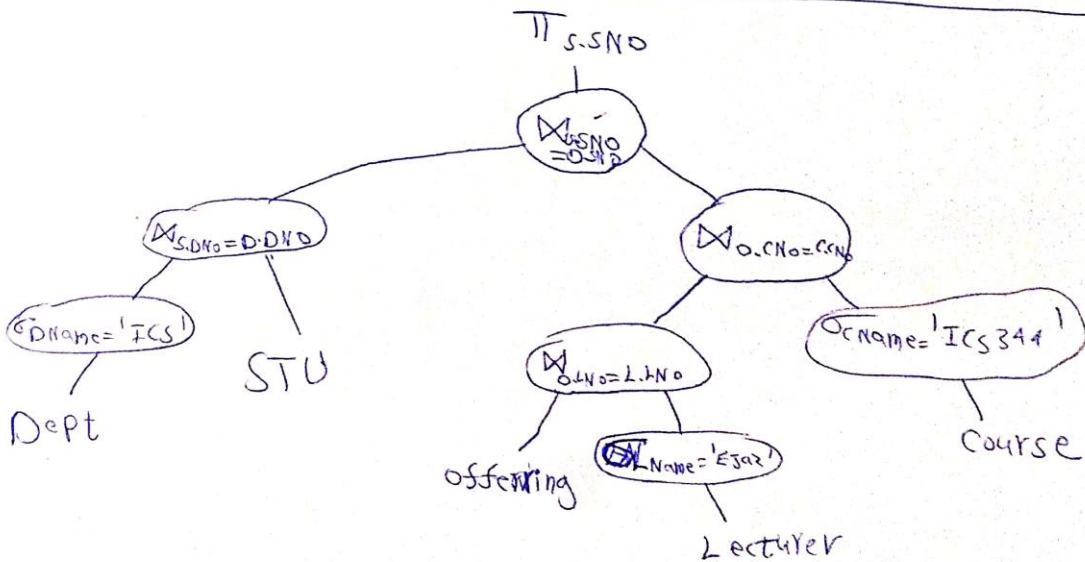 π S.SNO
⋈ S.SNO
=O.SNO
⋈ S.DNO=D.DNO
⋈ O.CNO=C.CNO
σ DName='ICS'
STU
⋈ O.LNO=L.LNO
σ CName='ICS344'
Dept
offerring
LName='Ejaz'
Course
Lecturer